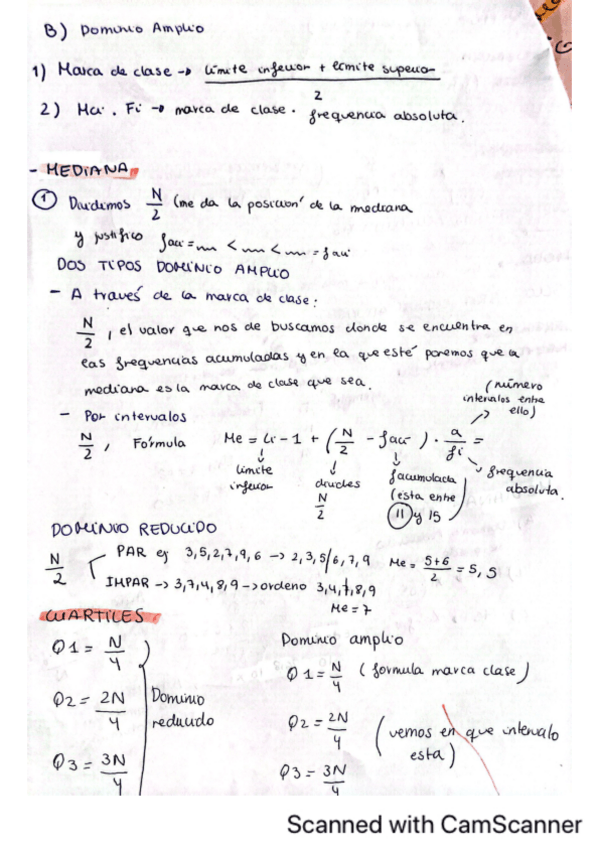 B) Dominio Amplio
1) Marca de clase → límite inferior + límite superior
2
2) Mci . Fi → marca de clase . frequencia absoluta.
- MEDIANA
① Dividimos N/2 (me da la posición de la mediana
y justifico faci = < < = faci
DOS TIPOS DOMINIO AMPLIO
- A través de la marca de clase:
N/2, el valor que nos de buscamos donde se encuentra en
las frequencias acumuladas y en la que esté ponemos que la
mediana es la marca de clase que sea.
(número intervalos entre ello)
- Por intervalos
N/2, Fórmula Me = Li - 1 + (N/2 - faci) . a/fi =
límite inferior
divides N/2
facumulada (esta entre 11 y 15
frequencia absoluta.
DOMINIO REDUCIDO
N/2 PAR ej 3,5,2,7,9,6 → 2,3,5/6,7,9 Me = 5+6/2 = 5,5
IMPAR → 3,7,4,8,9 → ordeno 3,4,7,8,9
Me = 7
CUARTILES
Q1 = N/4
Q2 = 2N/4
Q3 = 3N/4
Dominio reducido
Dominio amplio
Q1 = N/4 (formula marca clase)
Q2 = 2N/4 (vemos en que intervalo esta)
Q3 = 3N/4
Scanned with CamScanner